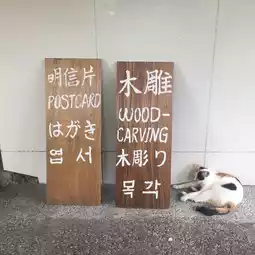 明信片
POSTCARD
はがき
엽서
木雕
WOOD-
CARVING
木彫り
목각